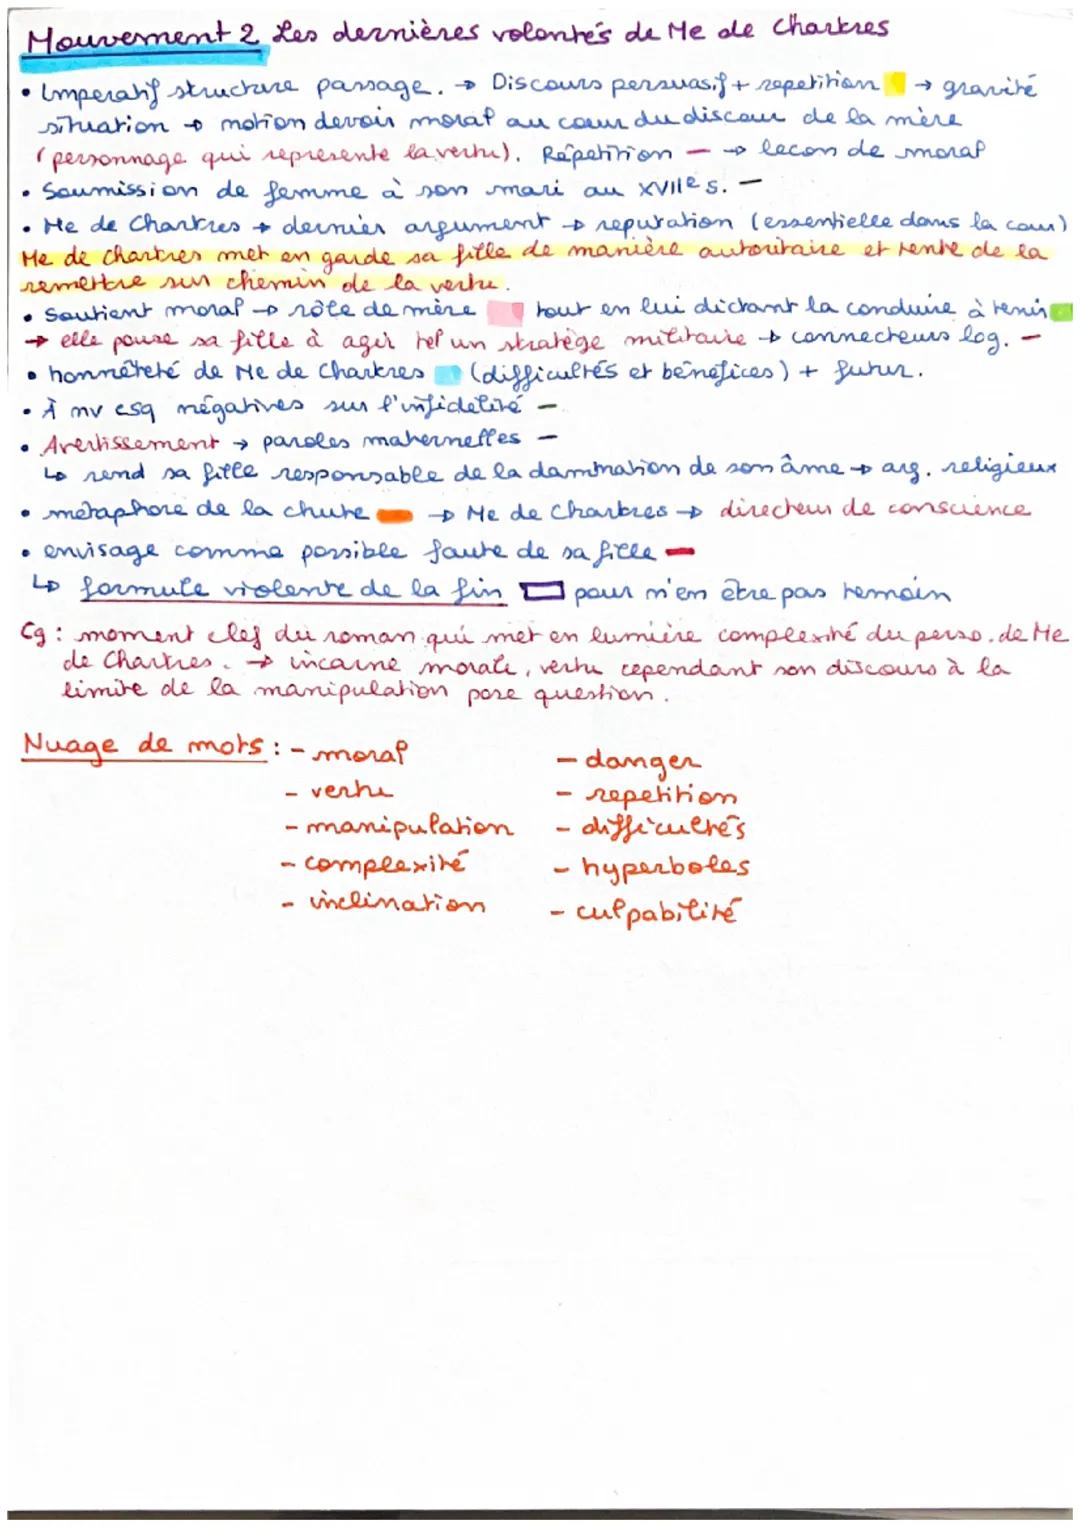 Mouvement 2 Les dernières volontés de Me de Chartres
• Imperatif structure passage. → Discours persuasif + repetition → gravité
situation → notion devoir moral au cœur du discour de la mère
(personnage qui represente la vertu). Répetition — → lecon de moral
• Soumission de femme à son mari au XVIIe s. —
• Me de Chartres → dernier argument → reputation (essentielle dans la cour)
Me de chartres met en garde sa fille de manière autoritaire et tente de la
remettre sur chemin de la vertu.
• Soutient moral → rôle de mère tout en lui dictant la conduite à tenir
→ elle pousse sa fille à agir tel un stratège militaire → connecteurs log. —
• honnêteté de Me de Chartres (difficultés et bénéfices) + futur.
• À nv csq négatives sur l'infidelité —
• Avertissement → paroles maternelles —
↳ rend sa fille responsable de la damnation de son âme → arg. religieux
• métaphore de la chute → Me de Chartres → directeur de conscience
• envisage comme possible faute de sa fille —
↳ formule violente de la fin pour n'en être pas temoin
Cg : moment clef du roman qui met en lumière complexité du perso. de Me
de Chartres. → incarne morale, vertu cependant son discours à la
limite de la manipulation pose question.
Nuage de mots : - moral - danger
- vertu - repetition
- manipulation - difficultés
- complexité - hyperboles
- inclination - culpabilité